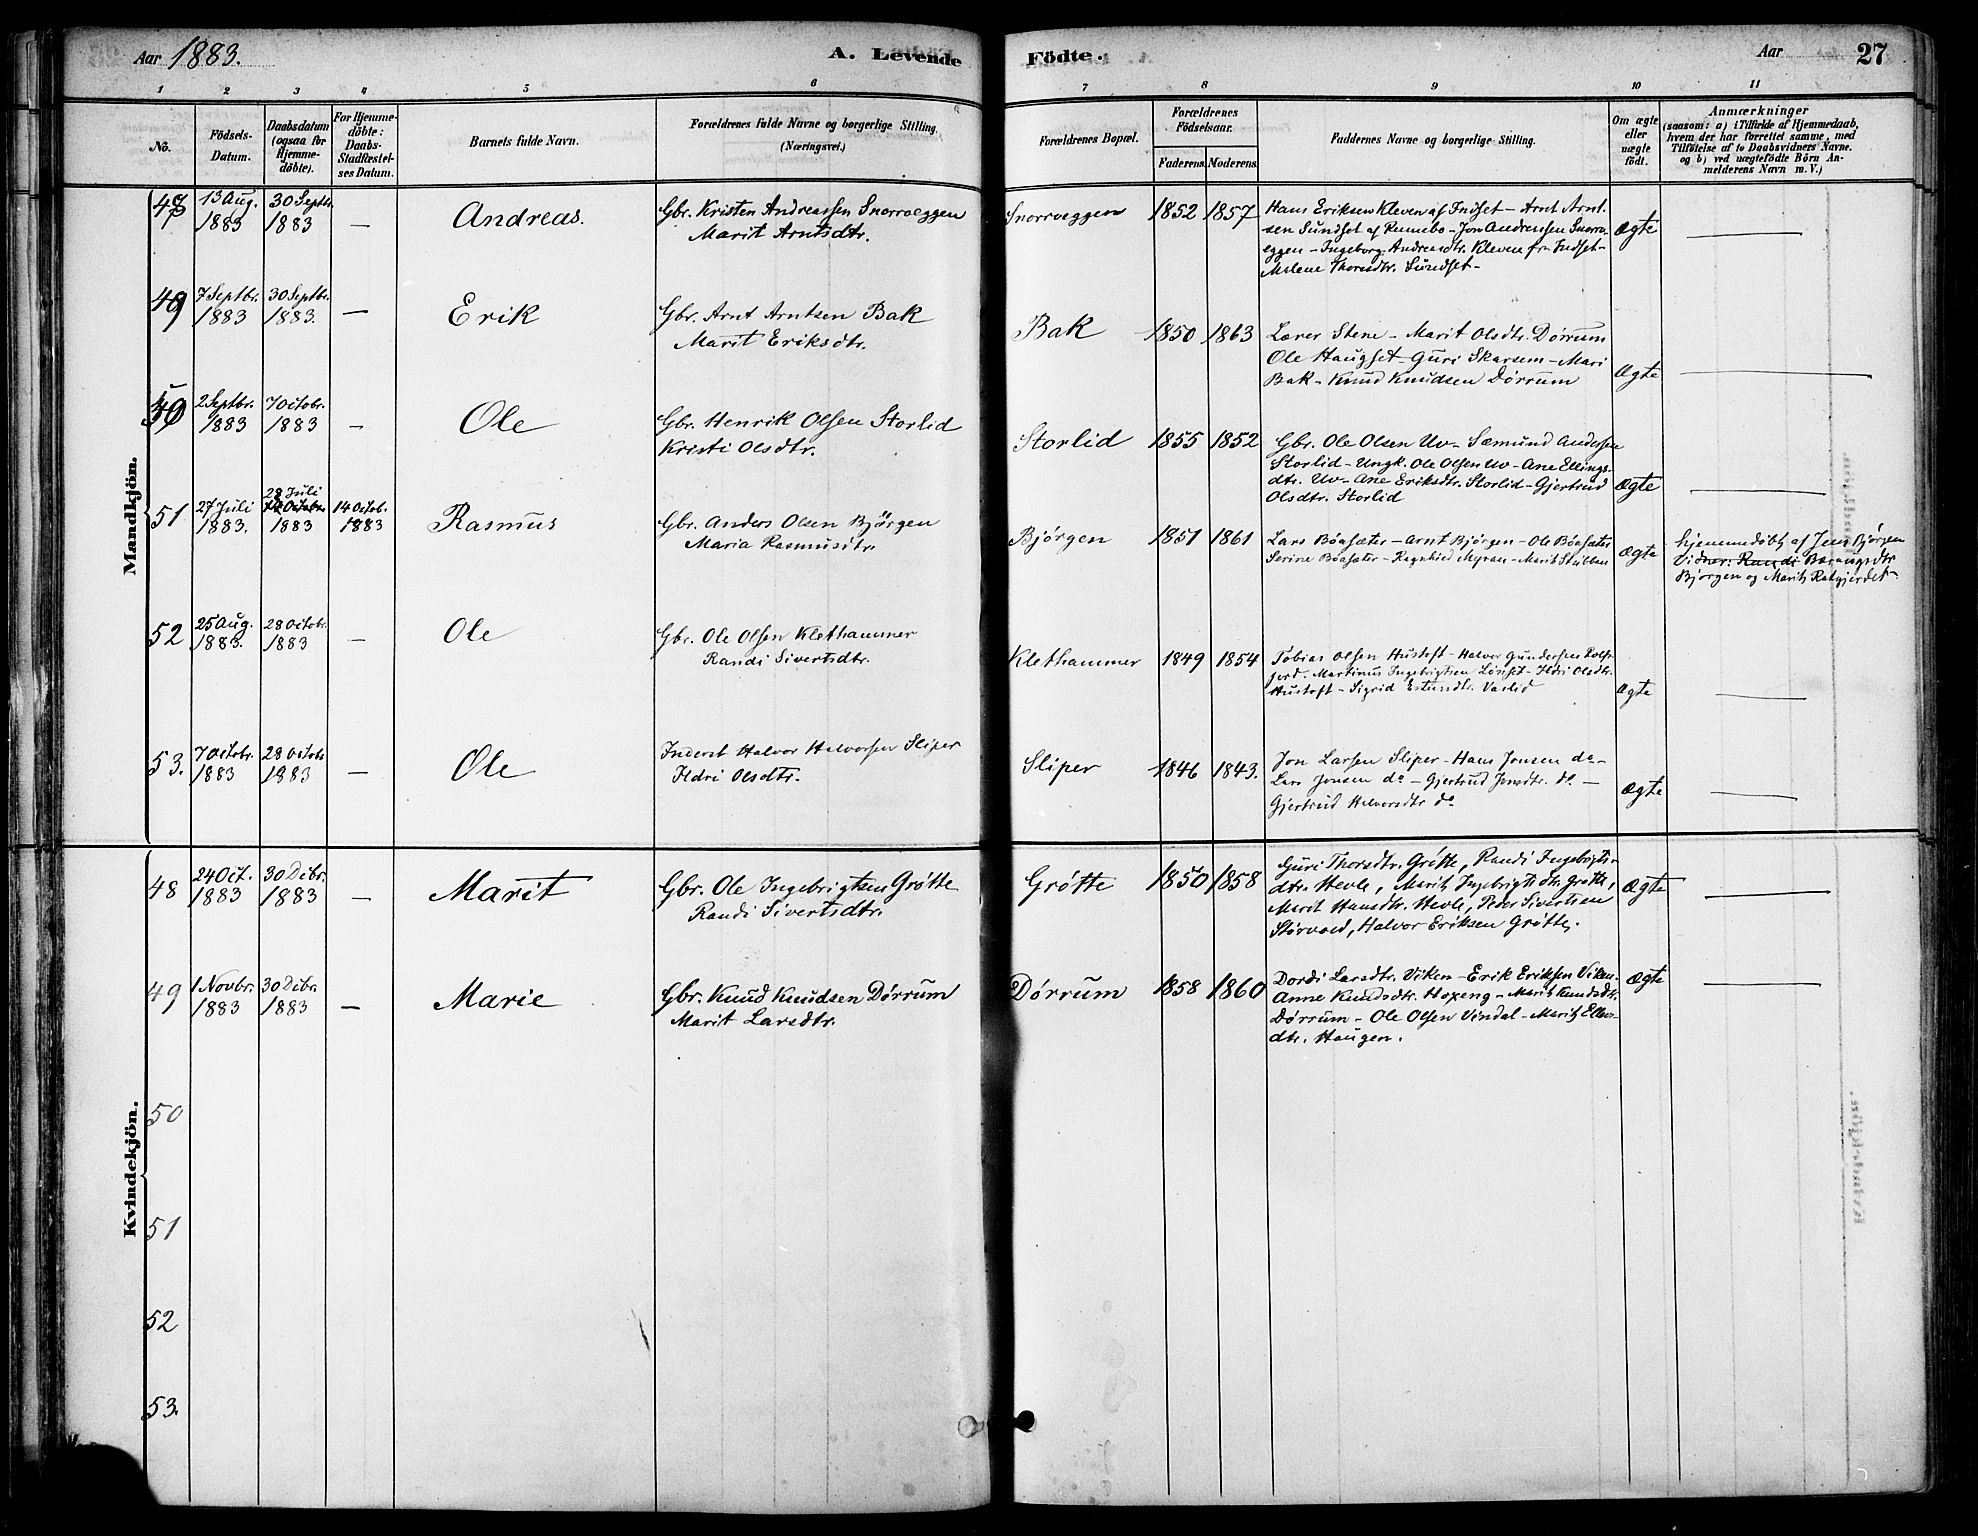 Aar 1883.
A. Levende
Födte.
Aar
27
1 2 3 4 5 6 7 8 9 10 11
No.
Födsels-
Datum.
Daabsdatum
(ogsaa for
Hjemme-
döbte).
For Hjemme-
döbte:
Daabs-
Stadfæstel-
ses Datum.
Barnets fulde Navn.
Forældrenes fulde Navne og borgerlige Stilling.
(Næringsvei.)
Forældrenes Bopæl.
Forældrenes
Födselsaar.
Faderens. Moderens.
Faddernes Navne og borgerlige Stilling.
Om ægte
eller
uægte
födt.
Anmærkninger
(saasom: a) i Tilfælde af Hjemmedaab,
hvem der har forrettet samme, med
Tilföielse af to Daabsvidners Navne.
og b) ved uægtefödte Börn An-
melderens Navn m. V.)
Mandkjön.
48 13 Aug. 1883 30 Septbr. 1883 — Andreas.
Gbr. Kristen Andreassen Snorroeggen
Marit Arntsdtr.
Snorroeggen 1852 1857
Hans Eriksen Kleven af Indset - Arnt Arnt-
sen Sundset af Rennebo - Jon Andreassen Snorro-
eggen - Ingeborg Andreasdtr. Kleven fr. Indset -
Malene Thorsdtr. Sundset -
Ægte —
49 7 Septbr. 1883 30 Septbr. 1883. — Erik
Gbr. Arnt Arntsen Bak
Marit Eriksdtr.
Bak 1850 1863
Lærer Stene - Marit Olsdtr. Dørrum
Ole Haugset - Guri Skarsem - Mari
Bak - Knud Knudsen Dørrum
Ægte —
50 2 Septbr. 1883 7 Octobr. 1883 - Ole
Gbr. Henrik Olsen Storlid
Kristi Olsdtr.
Storlid 1855 1852
Gbr. Ole Olsen Uv - Sæmund Andersen
Storlid - Ungk. Ole Olsen Uv - Ane Ellings-
dtr. Uv - Ane Eriksdtr. Storlid - Gjertrud
Olsdtr. Storlid
Ægte —
51. 27 Juli 1883. 28 Juli 14 Octobr. 1883 14 Octob. 1883 Rasmus
Gbr. Anders Olsen Bjørgen
Maria Rasmusdtr.
Bjørgen 1851 1861
Lars Böasæter - Arnt Bjørgen - Ole Böasæter
Serine Böasæter - Ragnhild Myran - Marit Stubben
Ægte
hjemmedøbt af Jens Bjørgen
Vidner: Randi Baraugsdtr
Bjørgen og Marit Ratgjerdet -
52 25 Aug. 1883. 28 Octobr. 1883 — Ole
Gbr. Ole Olsen Klethammer
Randi Sivertsdtr.
Klethammer 1849 1854
Tobias Olsen Hustoft - Halvor Gundersen Rolfs-
jord - Martinus Ingebrigtsen Løsset - Ildri Olsdtr.
Hustoft - Sigrid Estensdtr. Vaslid
Ægte —
53. 7 Octobr. 1883 28 Octobr 1883 — Ole
Inderst Halvor Halvorsen Sliper
Ildri Olsdtr.
Sliper 1846 1843.
Jon Larsen Sliper - Hans Jonsen do -
Lars Jonsen do - Gjertrud Jonsdtr. do -
Gjertrud Halvorsdtr do
Ægte —
Kvindekjön.
48 24 Oct. 1883 30 Dcbr. 1883 — Marit
Gbr. Ole Ingebrigtsen Grøtte
Randi Sivertsdtr.
Grøtte 1850 1858
Guri Thorsdtr. Grøtte, Randi Ingebrigts-
dtr. Hevle, Marit Ingebrigtsdtr. Grøtte,
Marit Hansdtr. Hevle, Peder Sivertsen
Størvold, Halvor Eriksen Grøtte.
Ægte —
49 1 Novbr. 1883 30 Dcbr. 1883 — Marie
Gbr. Knud Knudsen Dørrum
Marit Larsdtr.
Dørrum 1858 1860
Dordi Larsdtr. Viken - Erik Eriksen Viken -
Anne Knudsdtr. Hoxeng - Marit Knudsdtr.
Dørrum - Ole Olsen Vindal - Marit Ellevs-
dtr. Haugen.
Ægte —
50
51
52
53.